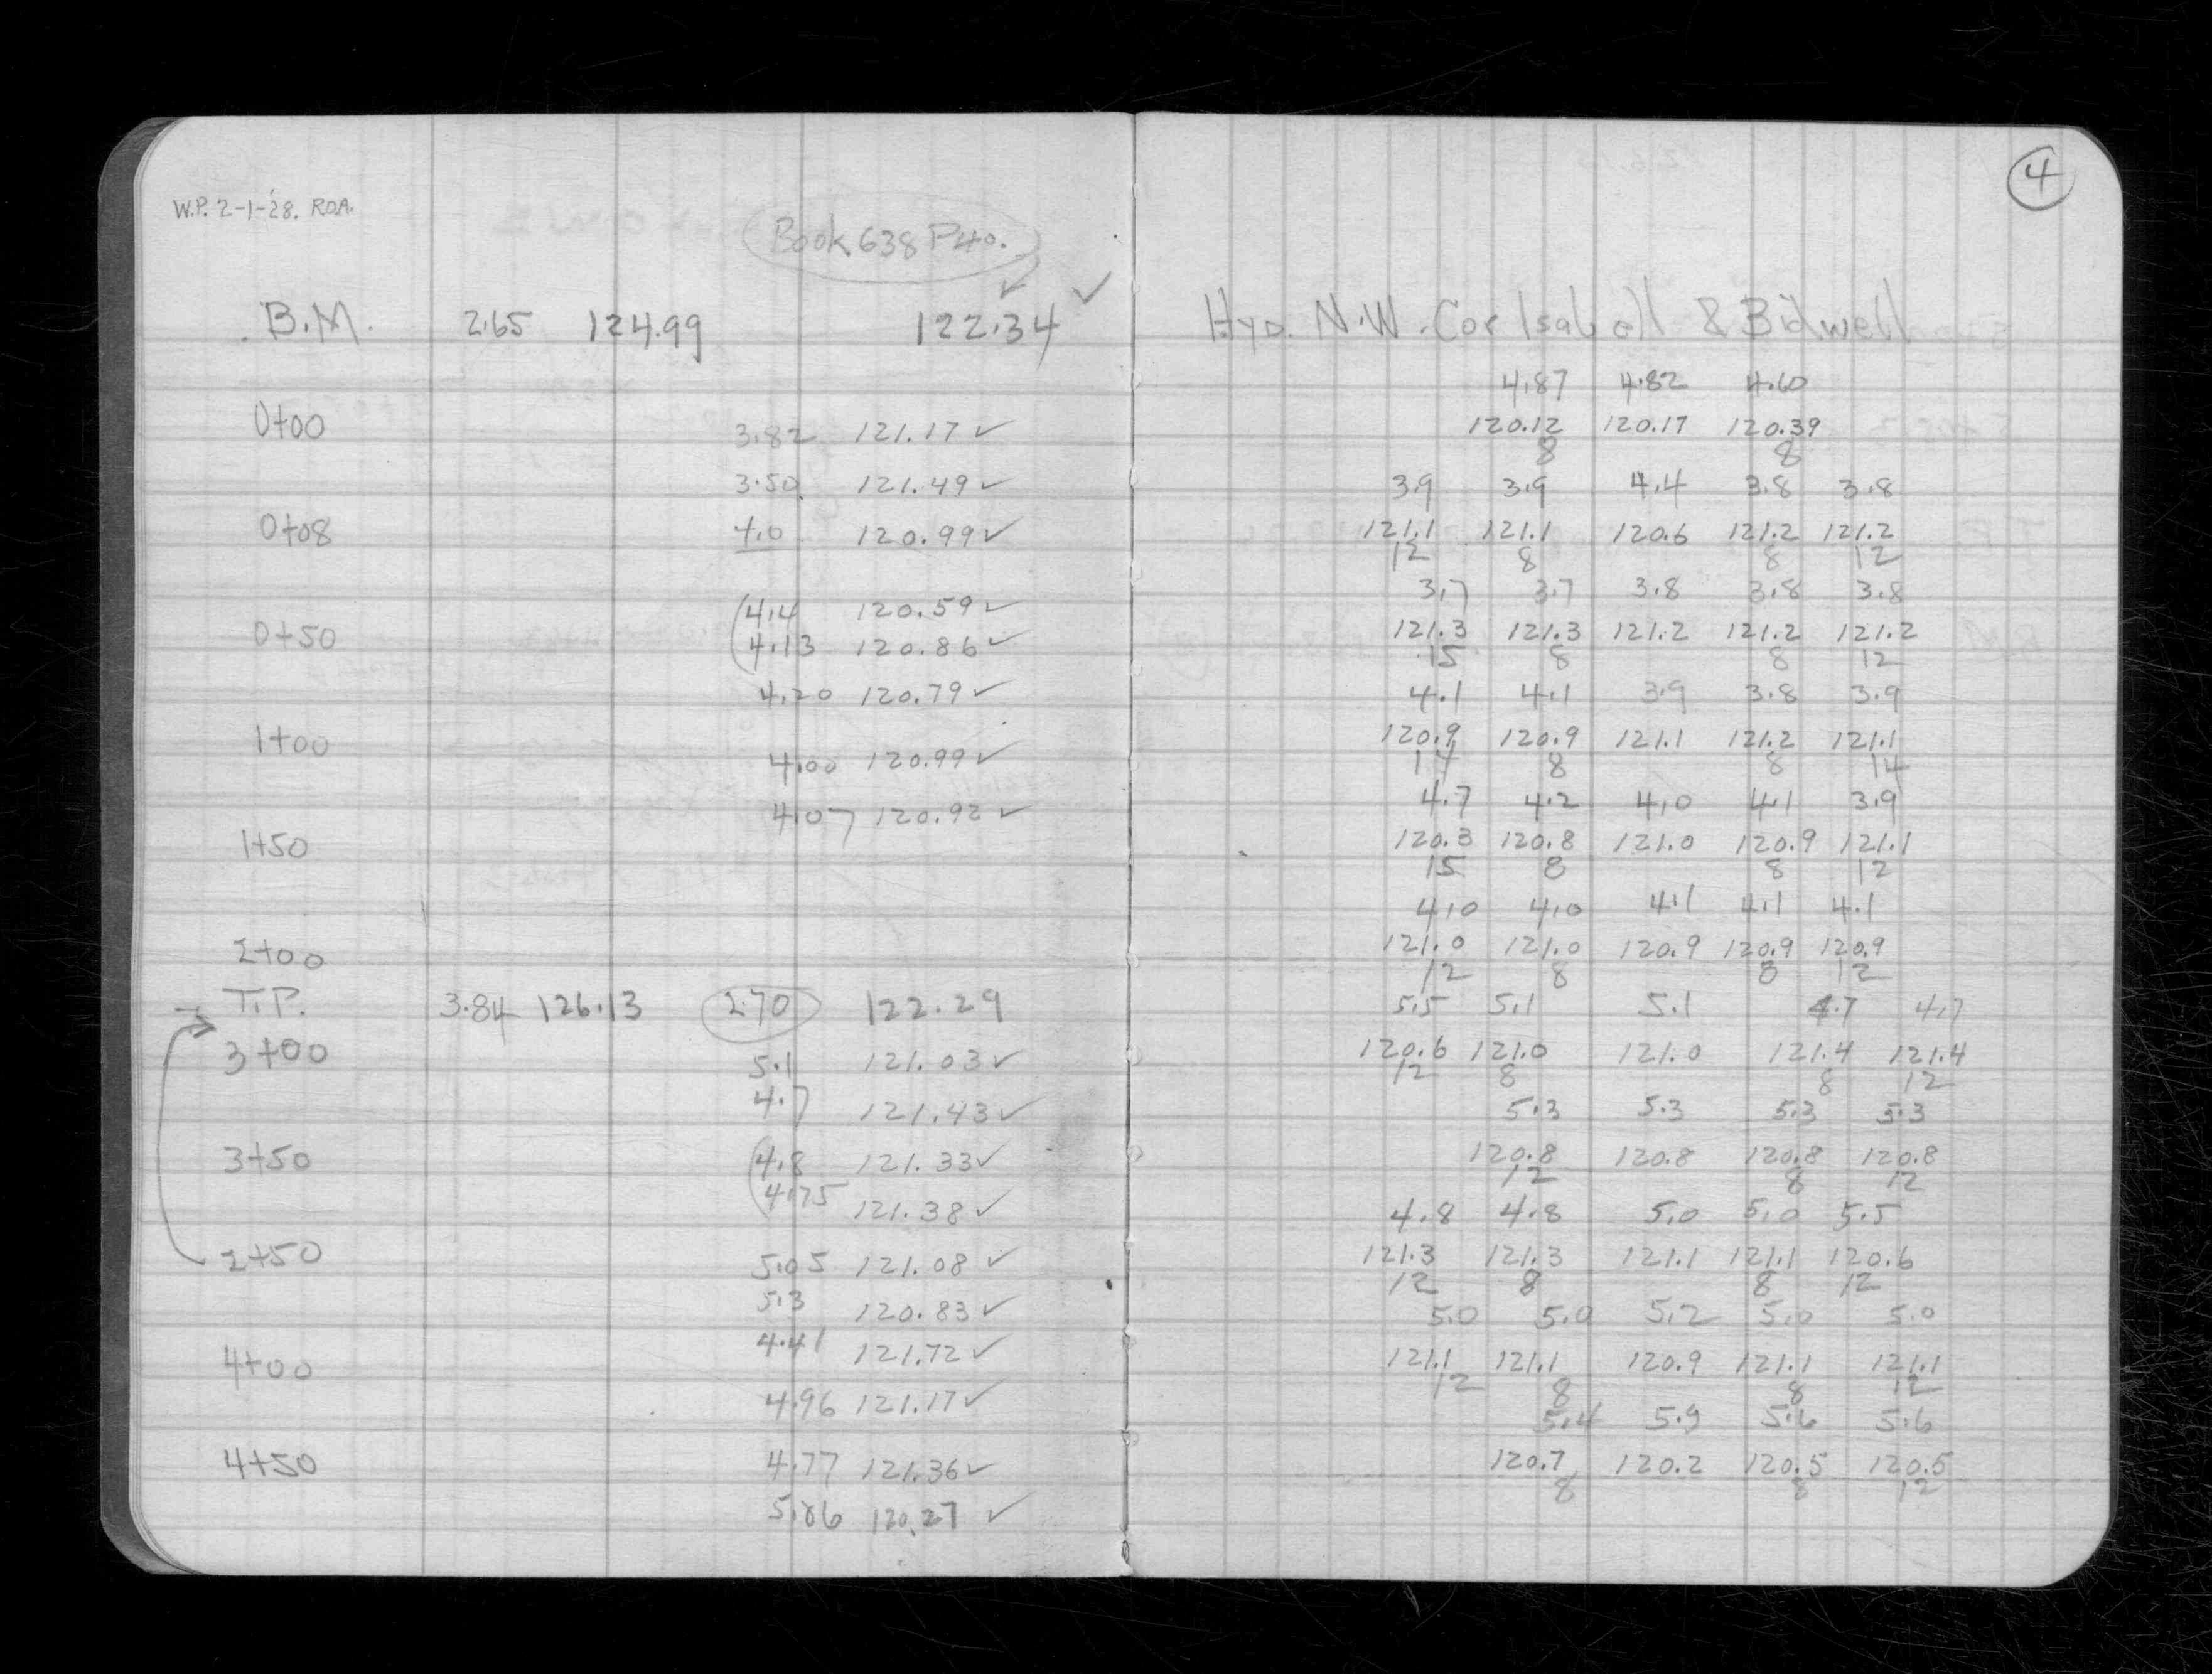 W.P. 2-1-28. R.O.A.
Book 638 P40.
B.M. 2.65 124.99 122.34 ✓
0+00 3.82 121.17 ✓
3.50 121.49 ✓
0+08 4.0 120.99 ✓
(4.4 120.59 ✓
0+50 (4.13 120.86 ✓
4.20 120.79 ✓
1+00
4.00 120.99 ✓
4.07 120.92 ✓
1+50
2+00
T.P. 3.84 126.13 2.70 122.29
3+00 5.1 121.03 ✓
4.7 121.43 ✓
3+50 (4.8 121.33 ✓
4.75 121.38 ✓
2+50 5.05 121.08 ✓
5.3 120.83 ✓
4.41 121.72 ✓
4+00
4.96 121.17 ✓
4+50 4.77 121.36 ✓
5.86 120.27 ✓
4
Hyd. N.W. Cor Isabell & Bidwell
4.87 4.82 4.60
120.12 120.17 120.39
8 8
3.9 3.9 4.4 3.8 3.8
121.1 121.1 120.6 121.2 121.2
12 8 8 12
3.7 3.7 3.8 3.8 3.8
121.3 121.3 121.2 121.2 121.2
15 8 8 12
4.1 4.1 3.9 3.8 3.9
120.9 120.9 121.1 121.2 121.1
14 8 8 14
4.7 4.2 4.0 4.1 3.9
120.3 120.8 121.0 120.9 121.1
15 8 8 12
4.0 4.0 4.1 4.1 4.1
121.0 121.0 120.9 120.9 120.9
12 8 8 12
5.5 5.1 5.1 4.7 4.7
120.6 121.0 121.0 121.4 121.4
12 8 8 12
5.3 5.3 5.3 5.3
120.8 120.8 120.8 120.8
12 8 12
4.8 4.8 5.0 5.0 5.5
121.3 121.3 121.1 121.1 120.6
12 8 8 12
5.0 5.0 5.2 5.0 5.0
121.1 121.1 120.9 121.1 121.1
12 8 8 12
5.4 5.9 5.6 5.6
120.7 120.2 120.5 120.5
8 8 12